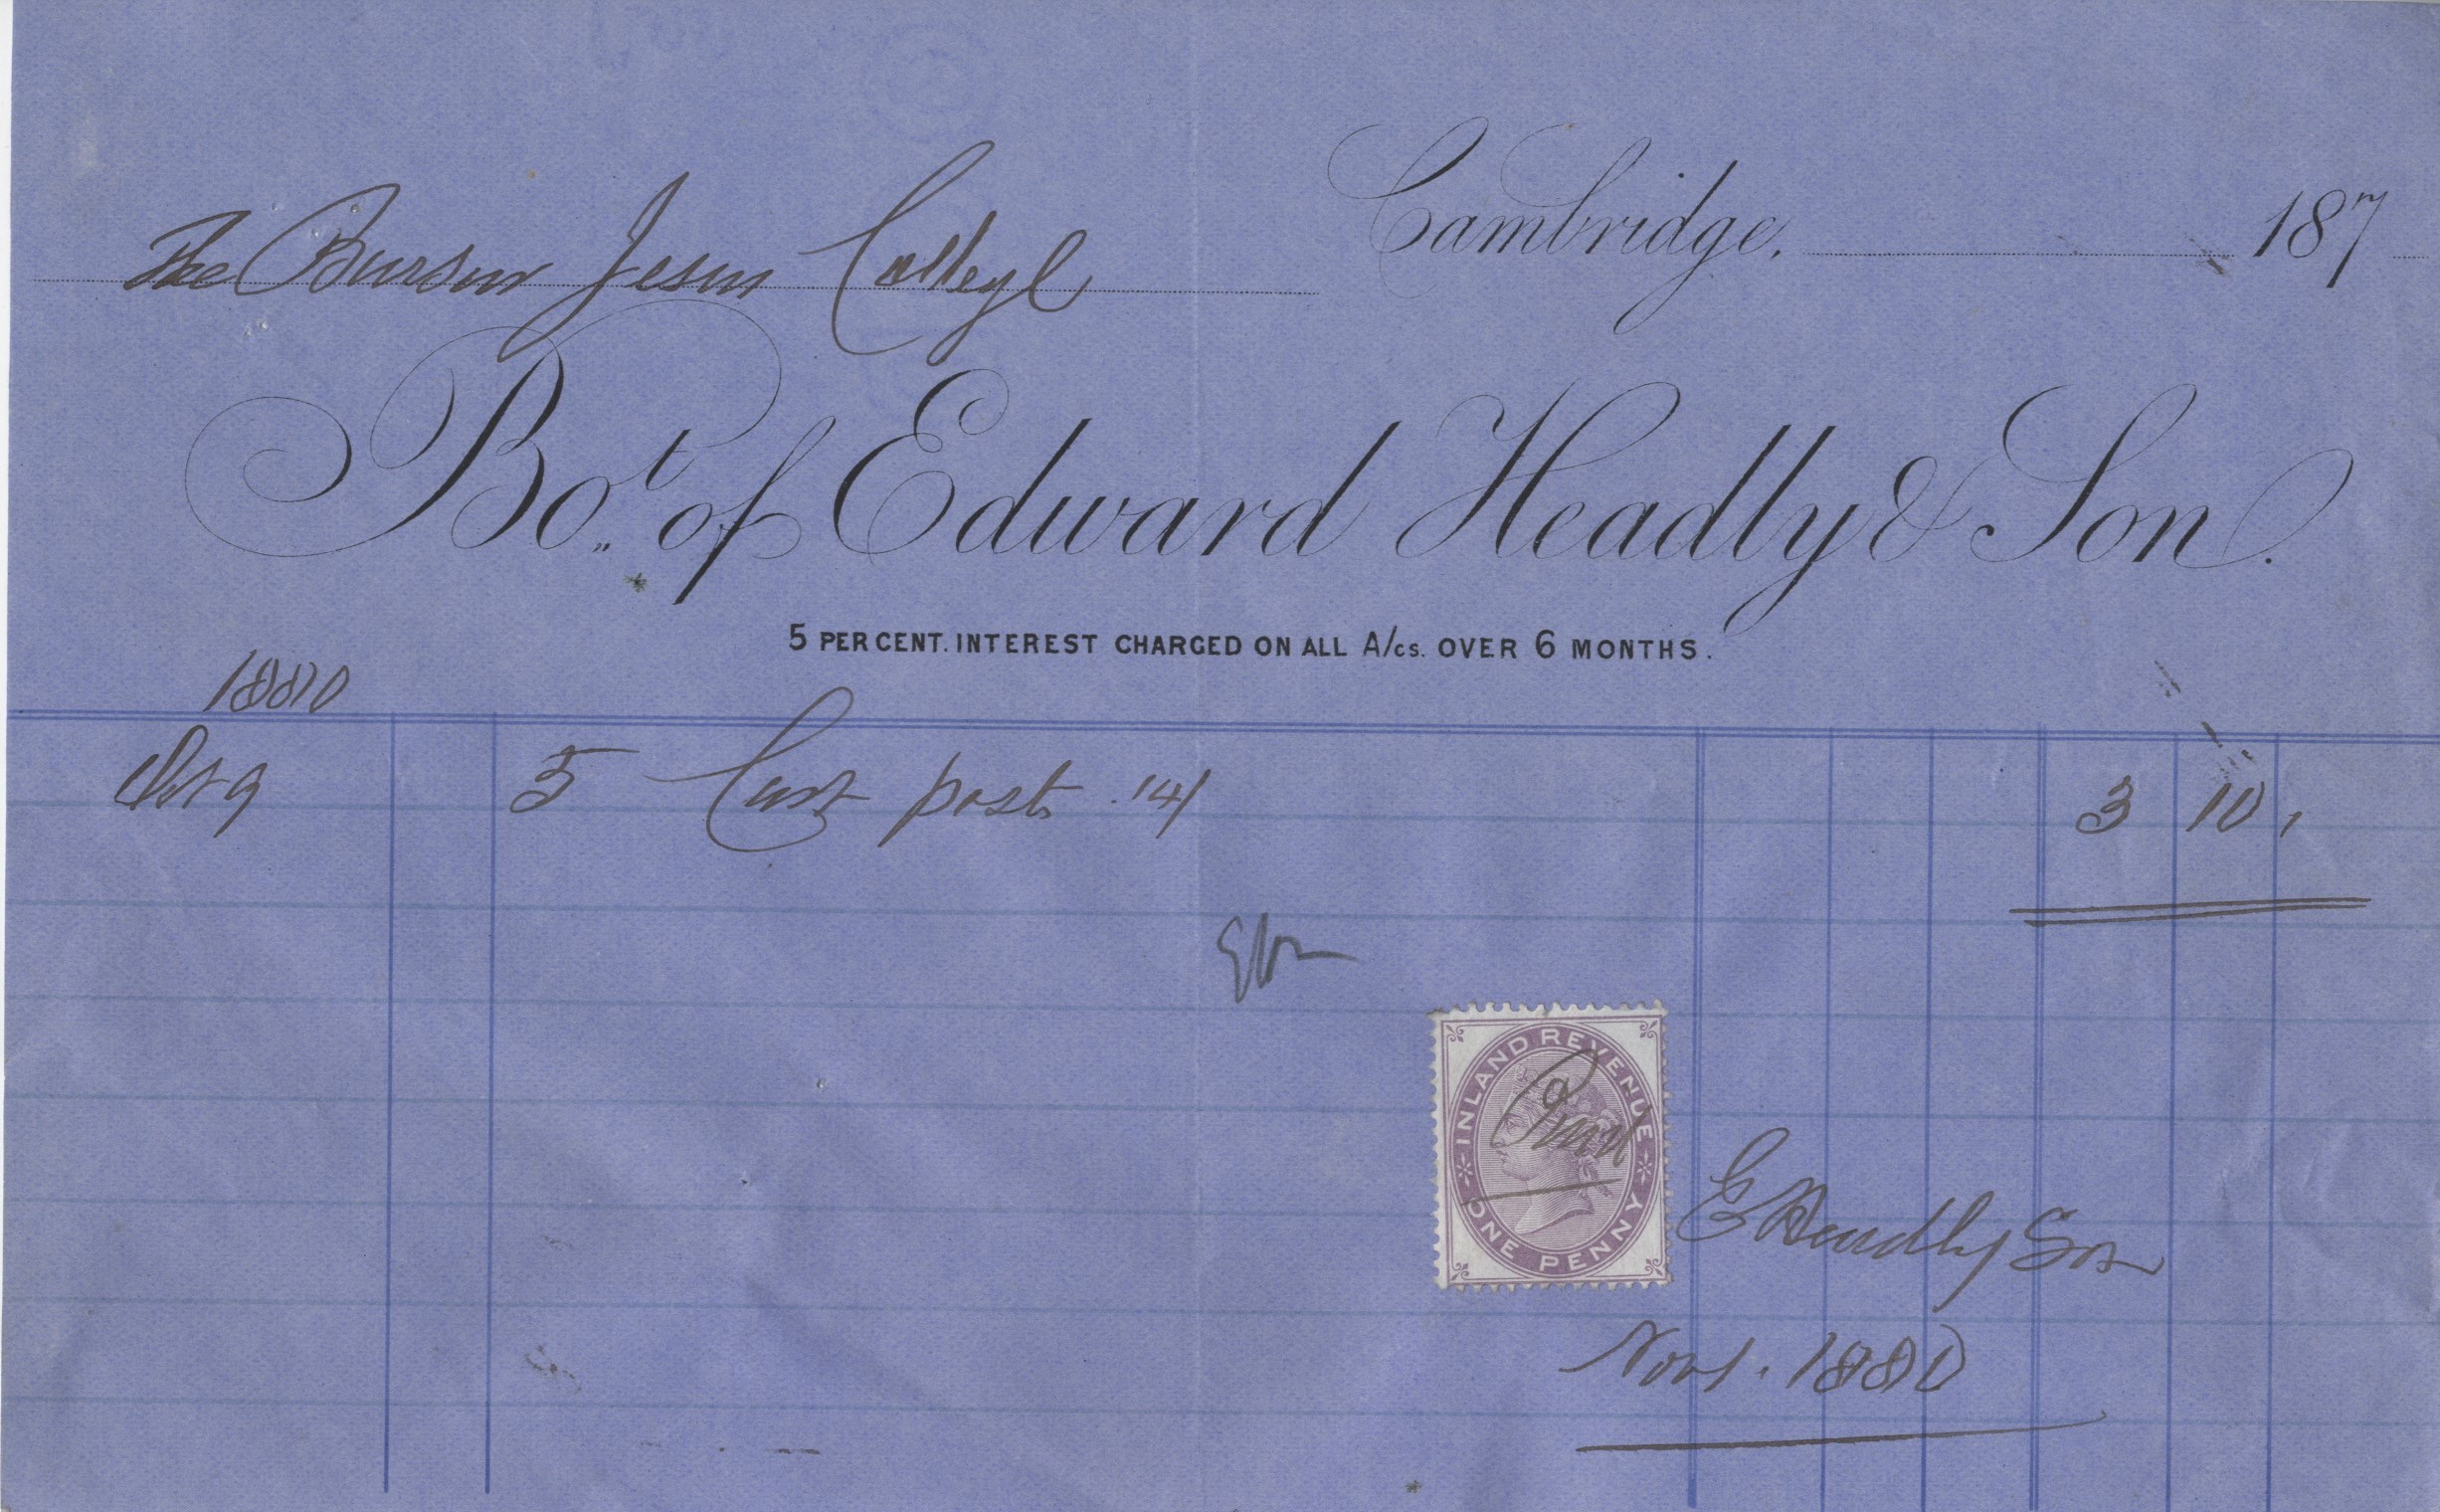 Cambridge. 187
The Bursar Jesus College
Bo.t of Edward Headly & Son.
5 PER CENT. INTEREST CHARGED ON ALL A/cs. OVER 6 MONTHS.
1880
Oct 9 5 Cast posts 14/ 3 10 ,
INLAND REVENUE
Paid
ONE PENNY
E Headly Son
Nov 1. 1880